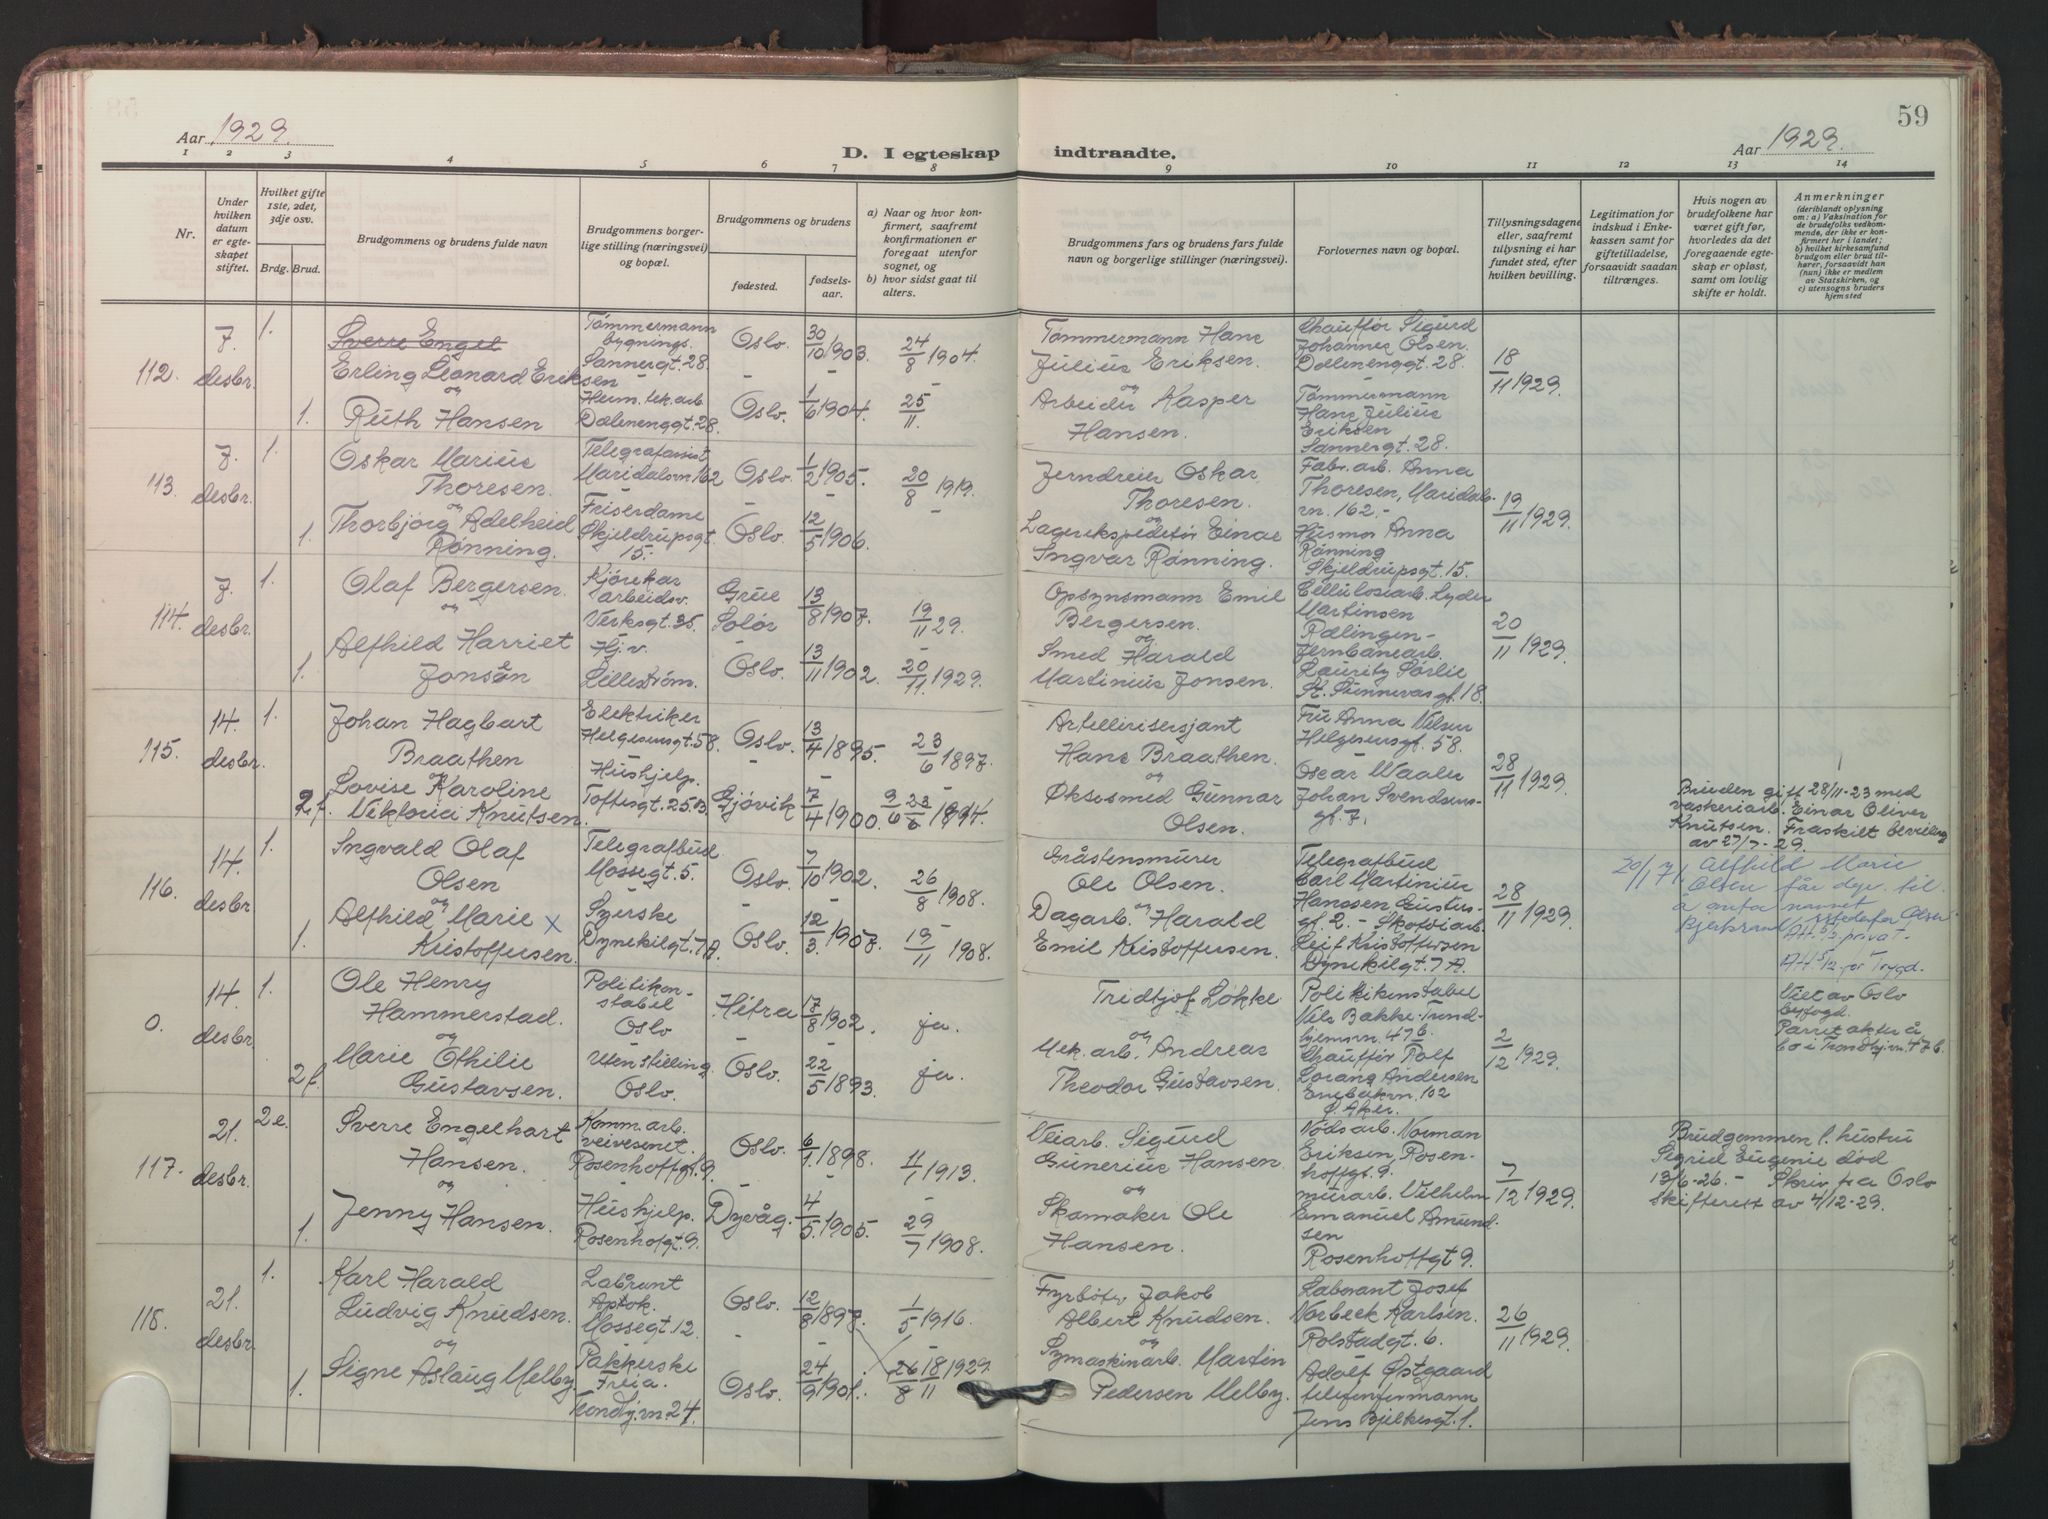 59
Aar 1929.
D. I egteskap indtraadte.
Aar 1929.
1 2 3 4 5 6 7 8 9 10 11 12 13 14
Nr.
Under hvilken datum er egteskapet stiftet.
Hvilket gifte 1ste, 2det, 3dje osv.
Brdg. Brud.
Brudgommens og brudens fulde navn
Brudgommens borgerlige stilling (næringsvei) og bopæl.
Brudgommens og brudens
fødested.
fødselsaar.
a) Naar og hvor konfirmert, saafremt konfirmationen er foregaat utenfor sognet, og
b) hvor sidst gaat til alters.
Brudgommens fars og brudens fars fulde navn og borgerlige stillinger (næringsvei).
Forlovernes navn og bopæl.
Tillysningsdagene eller, saafremt tillysning ei har fundet sted, efter hvilken bevilling.
Legitimation for indskud i Enkekassen samt for giftetilladelse, forsaavidt saadan tiltrænges.
Hvis nogen av brudefolkene har været gift før, hvorledes da det foregaaende egteskap er opløst, samt om lovlig skifte er holdt.
Anmerkninger
(deriblandt oplysning om: a) Vaksination for de brudefolks vedkommende, der ikke er konfirmert her i landet; b) hvilket kirkesamfund brudgom eller brud tilhører, forsaavidt han (hun) ikke er medlem av Statskirken, og c) utensogns bruders hjemsted
112. 7. desbr. 1.
Sverre Engel
Erling Leonard Eriksen
Tømmermann bygnings.
Sannergt. 28.
Oslo. 30/10 1903. 24/8 1904.
Tømmermann Hans Julius Eriksen.
Chauffør Sigurd Johannes Olsen. Dælenenggt. 28.
18/11 1929.
og
1. Ruth Hansen
Dælenenggt. 28.
Oslo 1/6 1904. 25/11.
Arbeider Kasper Hansen.
Tømmermann Hans Julius Eriksen Sannergt. 28.
113. 7. desbr. 1.
Oskar Marius Thoresen.
Telegrafassist Maridalsvn 162
Oslo. 1/2 1905. 20/8 1919.
Jerndreier Oskar Thoresen.
Fabr. arb. Anna Thoresen, Maridalsvn. 162.-
19/11 1929.
og
1. Thorbjørg Adelheid Rønning.
Friserdame Skjeldrupsgt. 15.
Oslo 12/5 1906.
Lagerekspeditør Einar Ingvar Rønning.
Husmor Anna Rønning Skjeldrupsgt. 15.
114. 7. desbr. 1.
Olaf Bergersen.
Kjørekar arbeidsv. Verksgt. 35.
Grue Solør 13/8 1907. 19/11 29.
Opsynsmann Emil Bergersen.
Cellulosiarb. Lyder Martinsen Rælingen-
20/11 1929.
og
1. Alfhild Harriet Jonsen
Hj. v. Lillestrøm.
Oslo. 13/11 1902. 20/11. 1929.
Smed Harald Martinius Jonsen.
Jernbanearb. Lauritz Sørlie St. Sunnevasgt. 18.
115. 14. desbr. 1.
Johan Hagbart Braathen
Elektriker Helgesensgt. 58.
Oslo. 13/4 1895. 23/6 1897.
Artellerisersjant Hans Braathen.
Fru Anna Nelsen Helgesensgt. 58.
28/11 1929.
og
2 f. Lovise Karoline Viktoria Knutsen.
Hushjelp. Toftesgt. 25.
Gjøvik 7/4 1900.
Øksesmed Gunnar Olsen.
Oscar Waaler Johan Svendsensgt. 7.
Bruden gift 28/11-23 med vaskeriarb. Einar Oliver Knutsen. Fraskilt bevilling av 27/7-29.
116. 14. desbr. 1.
Ingvald Olaf Olsen
Telegrafbud Mossegt. 5.
Oslo. 7/10 1902. 26/8 1908.
Gråstensmurer Ole Olsen.
Telegrafbud Carl Martinius Hanssen
28/11 1929.
og
1. Alfhild Marie x Kristoffersen.
Syerske Dynekilgt. 7 A.
Oslo 12/3. 1907. 19/11 1908.
Dagarb. Harald Emil Kristoffersen.
Skotøiarb. Leif Kristoffersen Dynekilgt. 7 A.
20/1 71. Alfhild Marie Olsen får dep. til å anta navnet istedenfor Olsen.
0. 14. desbr. 1.
Ole Henry Hammerstad.
Politikonstabel Oslo
Hitra 17/8 1902. ja.
Tridtjof Løkke
Politikonstabel Nils Bakke. Trondhjemsvn. 47 b.
2/12 1929.
Viet av Oslo byfogd. Parret akter å bo i Trondhj.vn. 47 b.
og
2 f. Marie Othilie Gustavsen.
Uten stilling Oslo.
Oslo. 22/5 1893. ja.
Mek. arb. Andreas Theodor Gustavsen.
Chauffør Rolf Lorang Andersen Enebakvn. 102 Ø. Aker.
117. 21. desbr. 2 e.
Sverre Engelhart Hansen.
Komm. arb. veivesenet. Rosenhoffgt. 9.
Oslo. 6/1. 1898. 1913.
Veiarb. Sigurd Gunerius Hansen.
Nødsarb. Norman Eriksen, Rosenhoffgt. 9.
7/12 1929.
Brudgommen l. hustru Sigrid Eugenie død 13/6-26.- Skriv fra Oslo skifterett av 4/12-29.
og
1. Jenny Hansen.
Hushjelp. Rosenhofgt. 9.
Dyvåg. 4/5. 1905. 29/7 1908.
Skomaker Ole Hansen.
murarb. Vilhelm Emanuel Amundsen Rosenhoffgt 9.
118. 21. desbr. 1.
Karl Harald Ludvig Knudsen.
Laborant Apotek. Mossegt. 12.
Oslo. 12/8 1897. 1/5 1916.
Fyrbøter Jakob Albert Knudsen.
Laborant Josef Norbeck Karlsen. Rolstadgt. 6.
26/11 1929.
og
1. Signe Aslaug Melby
Pakkerske Freia. Trondhj.vn. 24.
Oslo. 24/9 1901. 26/8 18/11 1929.
Symaskinarb. Martin Pedersen Melby.
Adolf Østgaard Jens Bjelkesgt. 1.